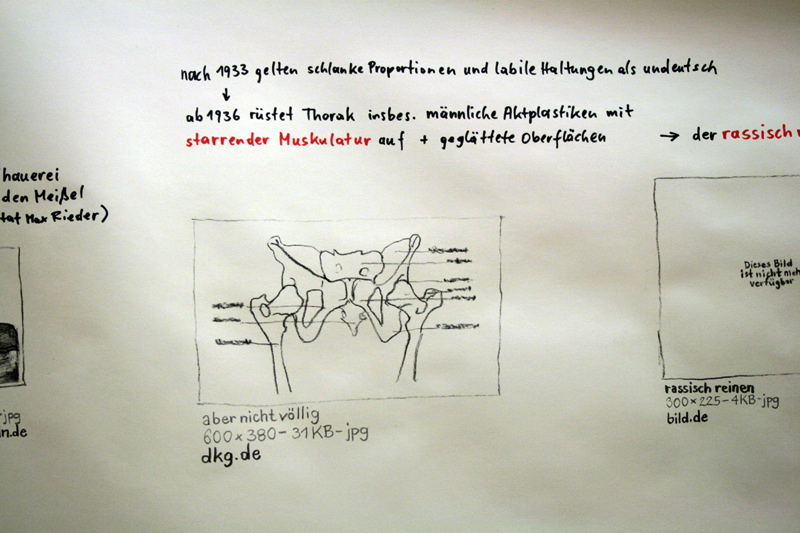 nach 1933 gelten schlanke Proportionen und labile Haltungen als undeutsch
ab 1936 rüstet Thorak insbes. männliche Aktplastiken mit
starrender Muskulatur auf + geglättete Oberflächen → der rassisch
hauerei
den Meißel
tat Max Rieder)
Dieses Bild
ist nicht meh
verfügbar
jpg
n.de
aber nicht völlig
600×380 - 31KB - jpg
dkg.de
rassisch reinen
300×225 - 4KB - jpg
bild.de